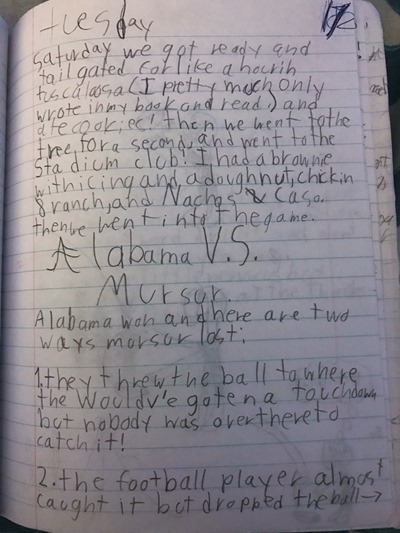 tuesday
Saturday we got ready and
tailgated for like a hour in
tuscaloosa (I pretty much only
wrote in my book and read,) and
ate cookies! then we went to the
tree, for a second, and went to the
Stadium club! I had a brownie
with icing and a doughnut, chickin
& ranch, and Nachos & Caso.
then we went into the game.
Alabama V.S.
Mursur.
Alabama won and here are two
ways mursur lost:
1. they threw the ball to where
the Would've goten a touchdown
but nobody was over there to
catch it!
2. the football player almost
caught it but dropped the ball→